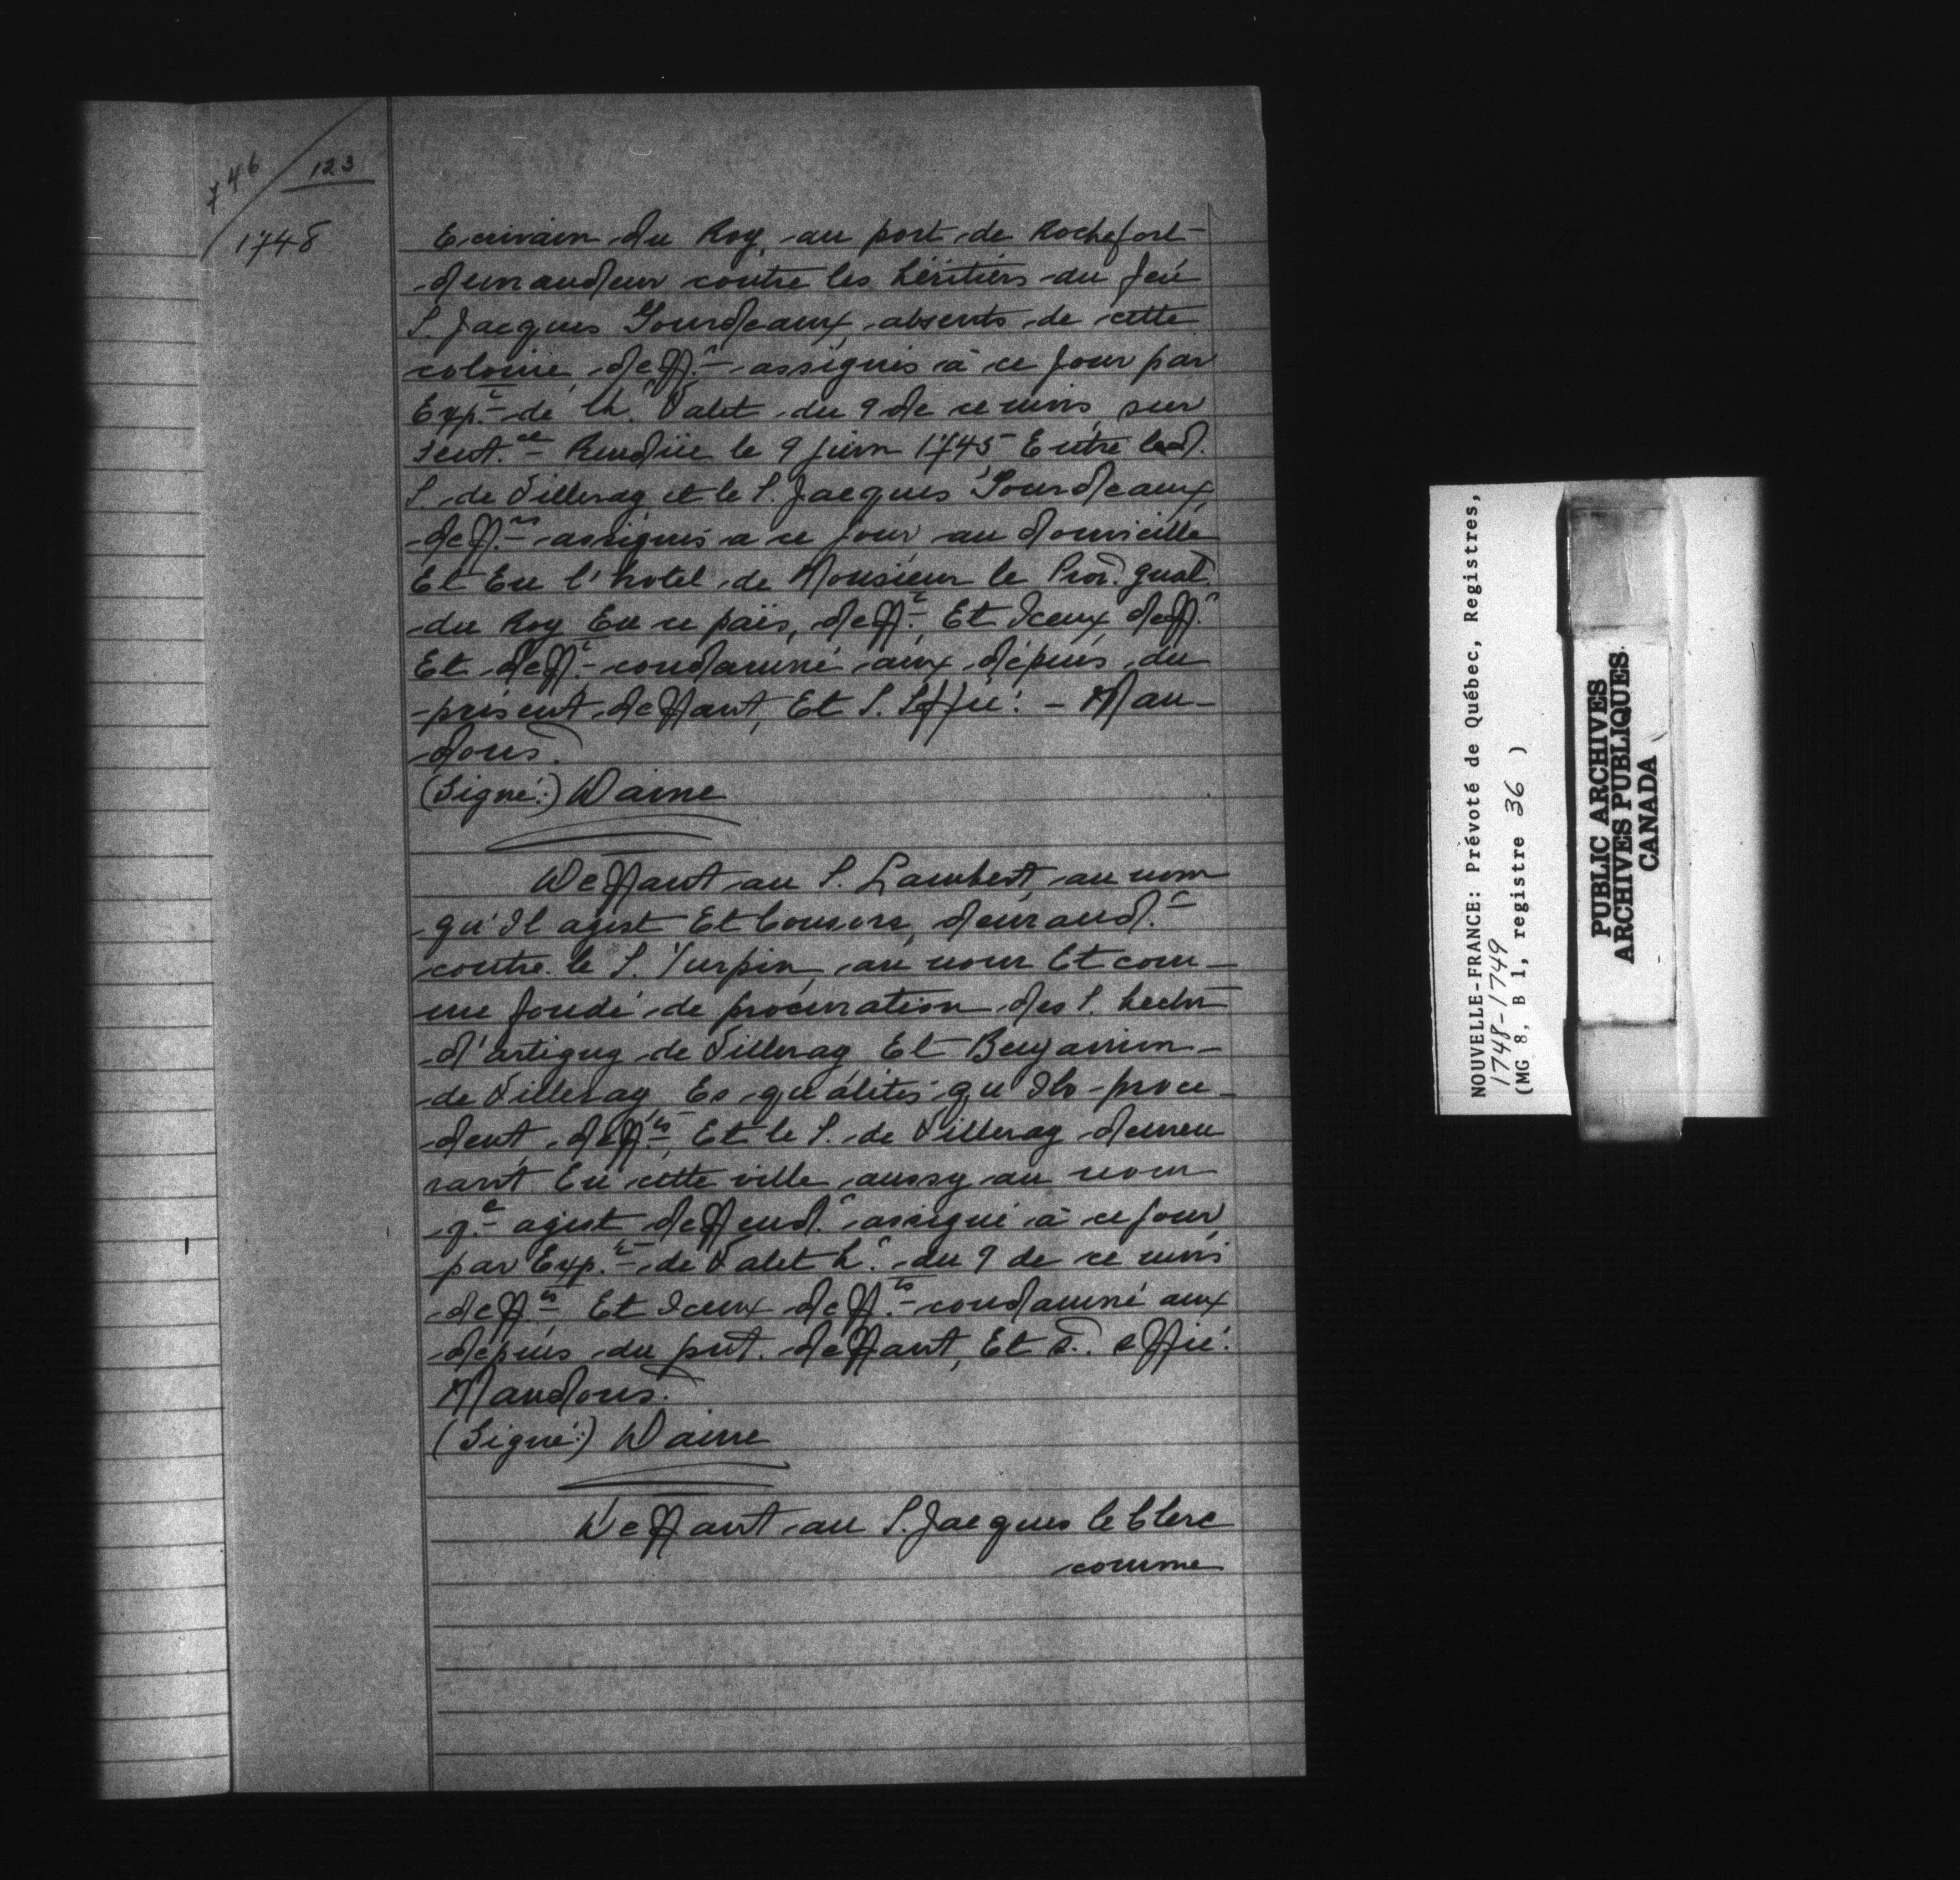 746
123
1748
Ecrivain du Roy, au port de Rochefort
demandeur contre les héritiers du feu
S. Jacques Gourdeaux, absents de cette
colonie, deff.r assignés à ce jour par
Exp.t de h.r Valet du 9 de ce mois, sur
sent.ce Rendüe le 9 juin 1745 Entre led.
S. de Villeray et le S. Jacques Gourdeaux
deff.rs assignés a ce jour au domicille
Et En l'hotel de Monsieur le Pror. gnal.
du Roy En ce païs, deff.t Et Iceux deff.r
Et deff.t condamné aux dépens du
présent deffaut, Et S. Siffié. - Man-
dons.
(Signé:) Daine
Deffaut au S. Lambert, au nom
qu'Il agist Et Consors, demand.r
contre le S. Turpin, au nom Et com-
me fondé de procuration des S. hector
d'artigny de Villeray Et Benjamin
de Villeray Es qualités qu'Ils proce-
dent, deff.rs Et le S. de Villeray demeu
rant En cette ville aussy au nom
q.l agist deffend.r assigné à ce jour
par Exp.t de Valet h.r du 9 de ce mois
deff.ts Et Iceux deff.ts condamné aux
dépens du prt. deffaut, Et S. siffié.
Mandons.
(Signé:) Daine
Deffaut au S. Jacques le Clerc
comme
NOUVELLE-FRANCE: Prévoté de Québec, Registres,
1748-1749
(MG 8, B 1, registre 36 )
PUBLIC ARCHIVES
ARCHIVES PUBLIQUES
CANADA